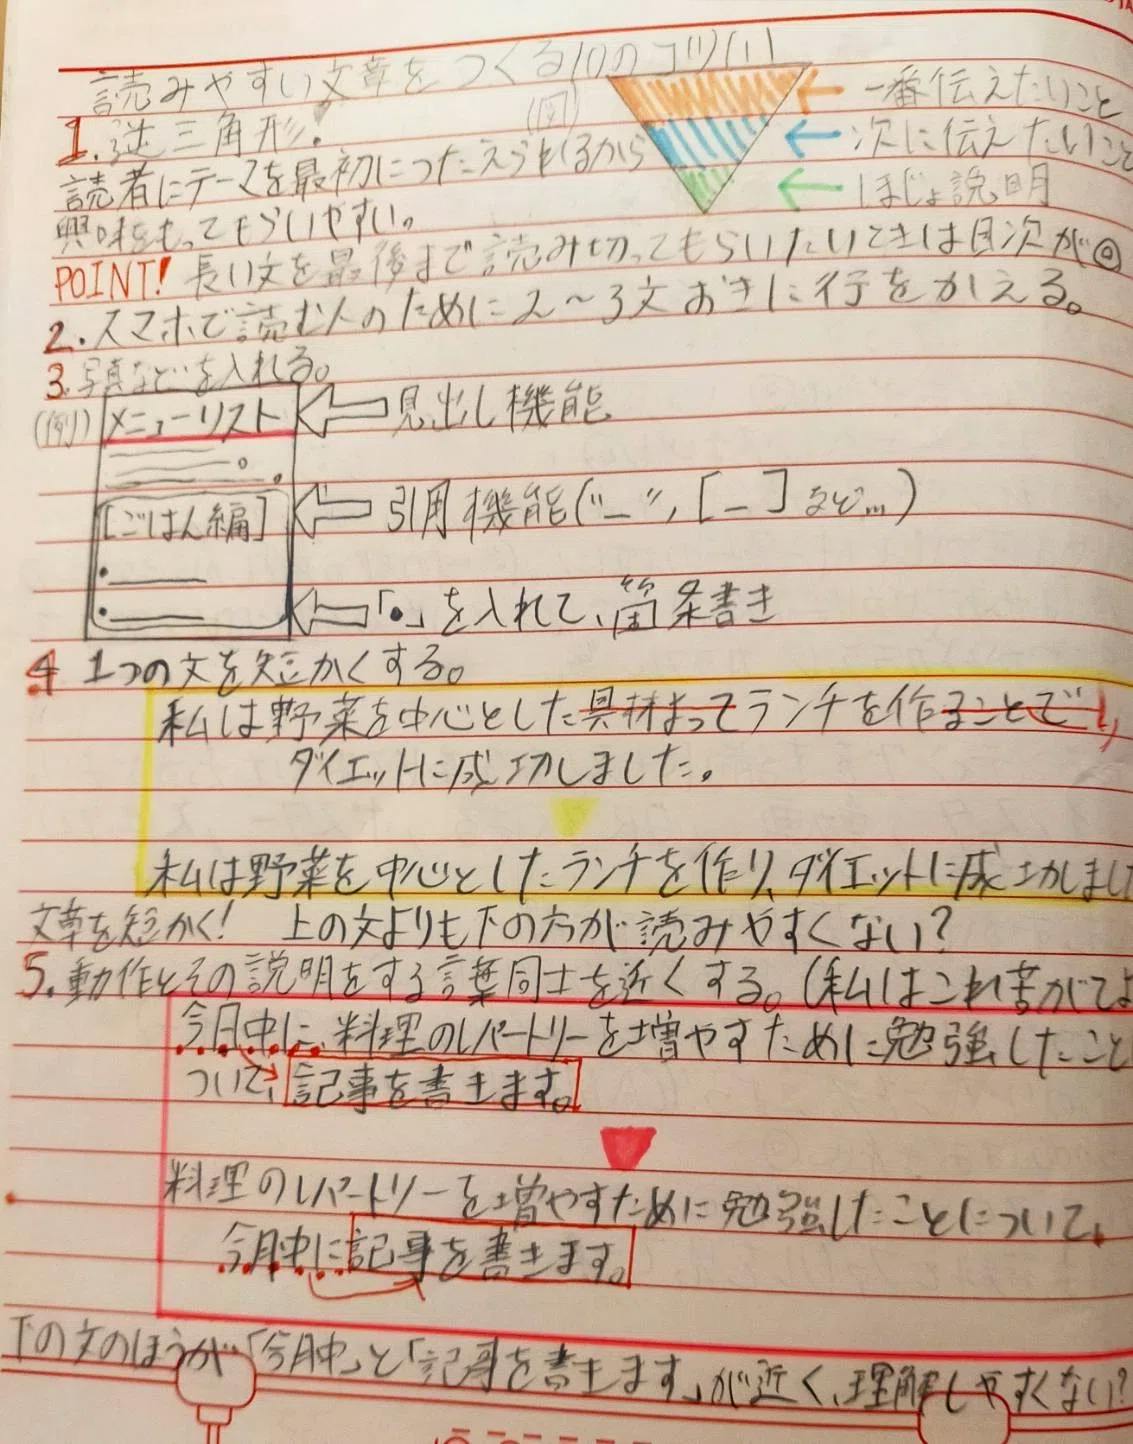 読みやすい文章をつくる10のコツ(1)
1.逆三角形.
(図)
一番伝えたいこと
次に伝えたいこと
ほじょ説明
読者にテーマを最初につたえられるから
興味をもってもらいやすい。
POINT! 長い文を最後まで読み切ってもらいたいときは目次が◎
2.スマホで読む人のために2～3文おきに行をかえる。
3.写真などを入れる。
(例)
メニューリスト
見出し機能
[ごはん編]
引用機能("_", [_]など…)
「•」を入れて、箇条書き
4 1つの文を短かくする。
私は野菜を中心とした具材よってランチを作ることでり、
ダイエットに成功しました。
私は野菜を中心としたランチを作り、ダイエットに成功しまし
文章を短かく! 上の文よりも下の方が読みやすくない?
5.動作とその説明をする言葉同士を近くする。(私はこれ苦がて
今月中に、料理のレパートリーを増やすために勉強したこと
ついて、記事を書きます。
料理のレパートリーを増やすために勉強したことについて、
今月中に記事を書きます。
下の文のほうが「今月中」と「記事を書きます」が近く、理解しやすくない?